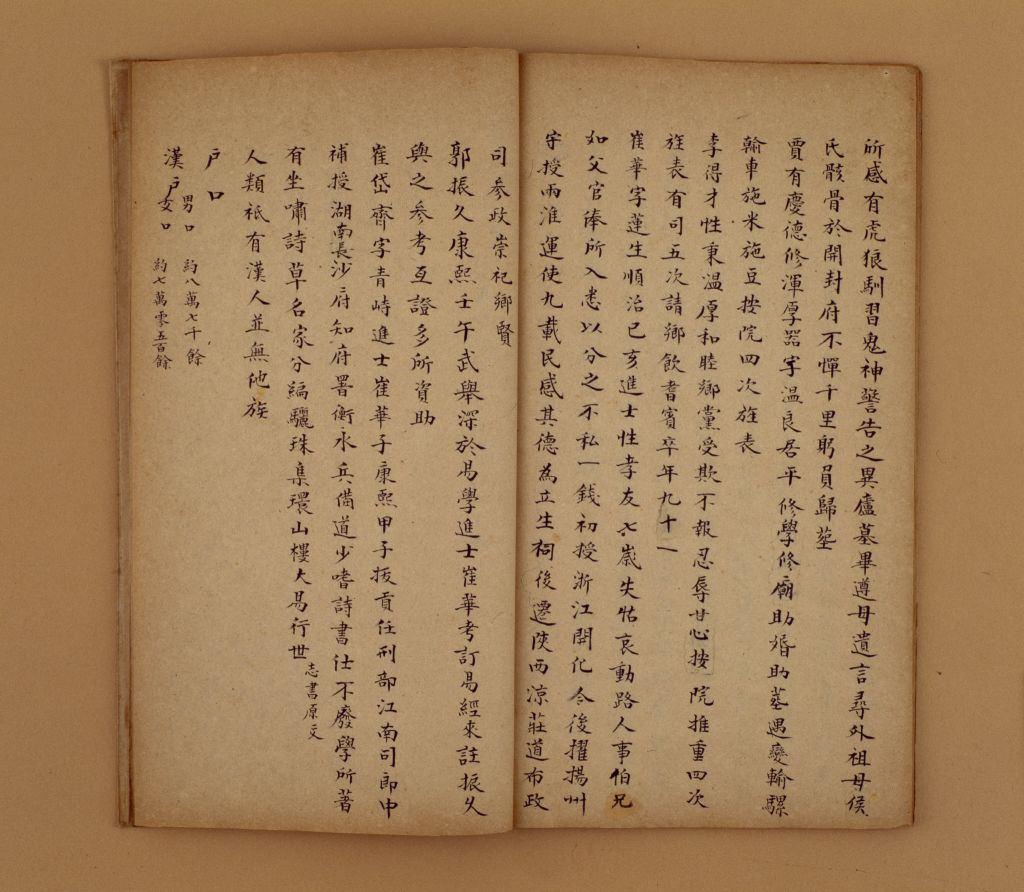 所感有虎狼馴習鬼神警告之異廬墓畢遵母遺言尋外祖母侯
氏骸骨於開封府不憚千里躬員歸塟
賈有慶德修渾厚器宇溫良居平修學修廟助婚助塟遇變輸騾
輸車施米施豆按院四次旌表
李得才性秉溫厚和睦鄉黨受欺不報忍辱甘心按院推重四次
旌表有司五次請鄉飲耆賓卒年九十一
崔華字蓮生順治己亥進士性孝友七歲失怙哀動路人事伯兄
如父官俸所入悉以分之不私一錢初授浙江開化令後擢揚州
守授兩淮運使九載民感其德為立生祠後遷陝西涼莊道布政
司參政崇祀鄉賢
郭振久康熙壬午武舉深於易學進士崔華考訂易經來註振久
與之參考互證多所資助
崔岱齊字青峙進士崔華子康熙甲子拔貢任刑部江南司郎中
補授湖南長沙府知府署衡永兵備道少嗜詩書仕不廢學所著
有坐嘯詩草名家分編驪珠集環山樓大易行世 志書原文
人類祇有漢人並無他族
戶口
漢戶 男口 約八萬七千餘
女口 約七萬零五百餘